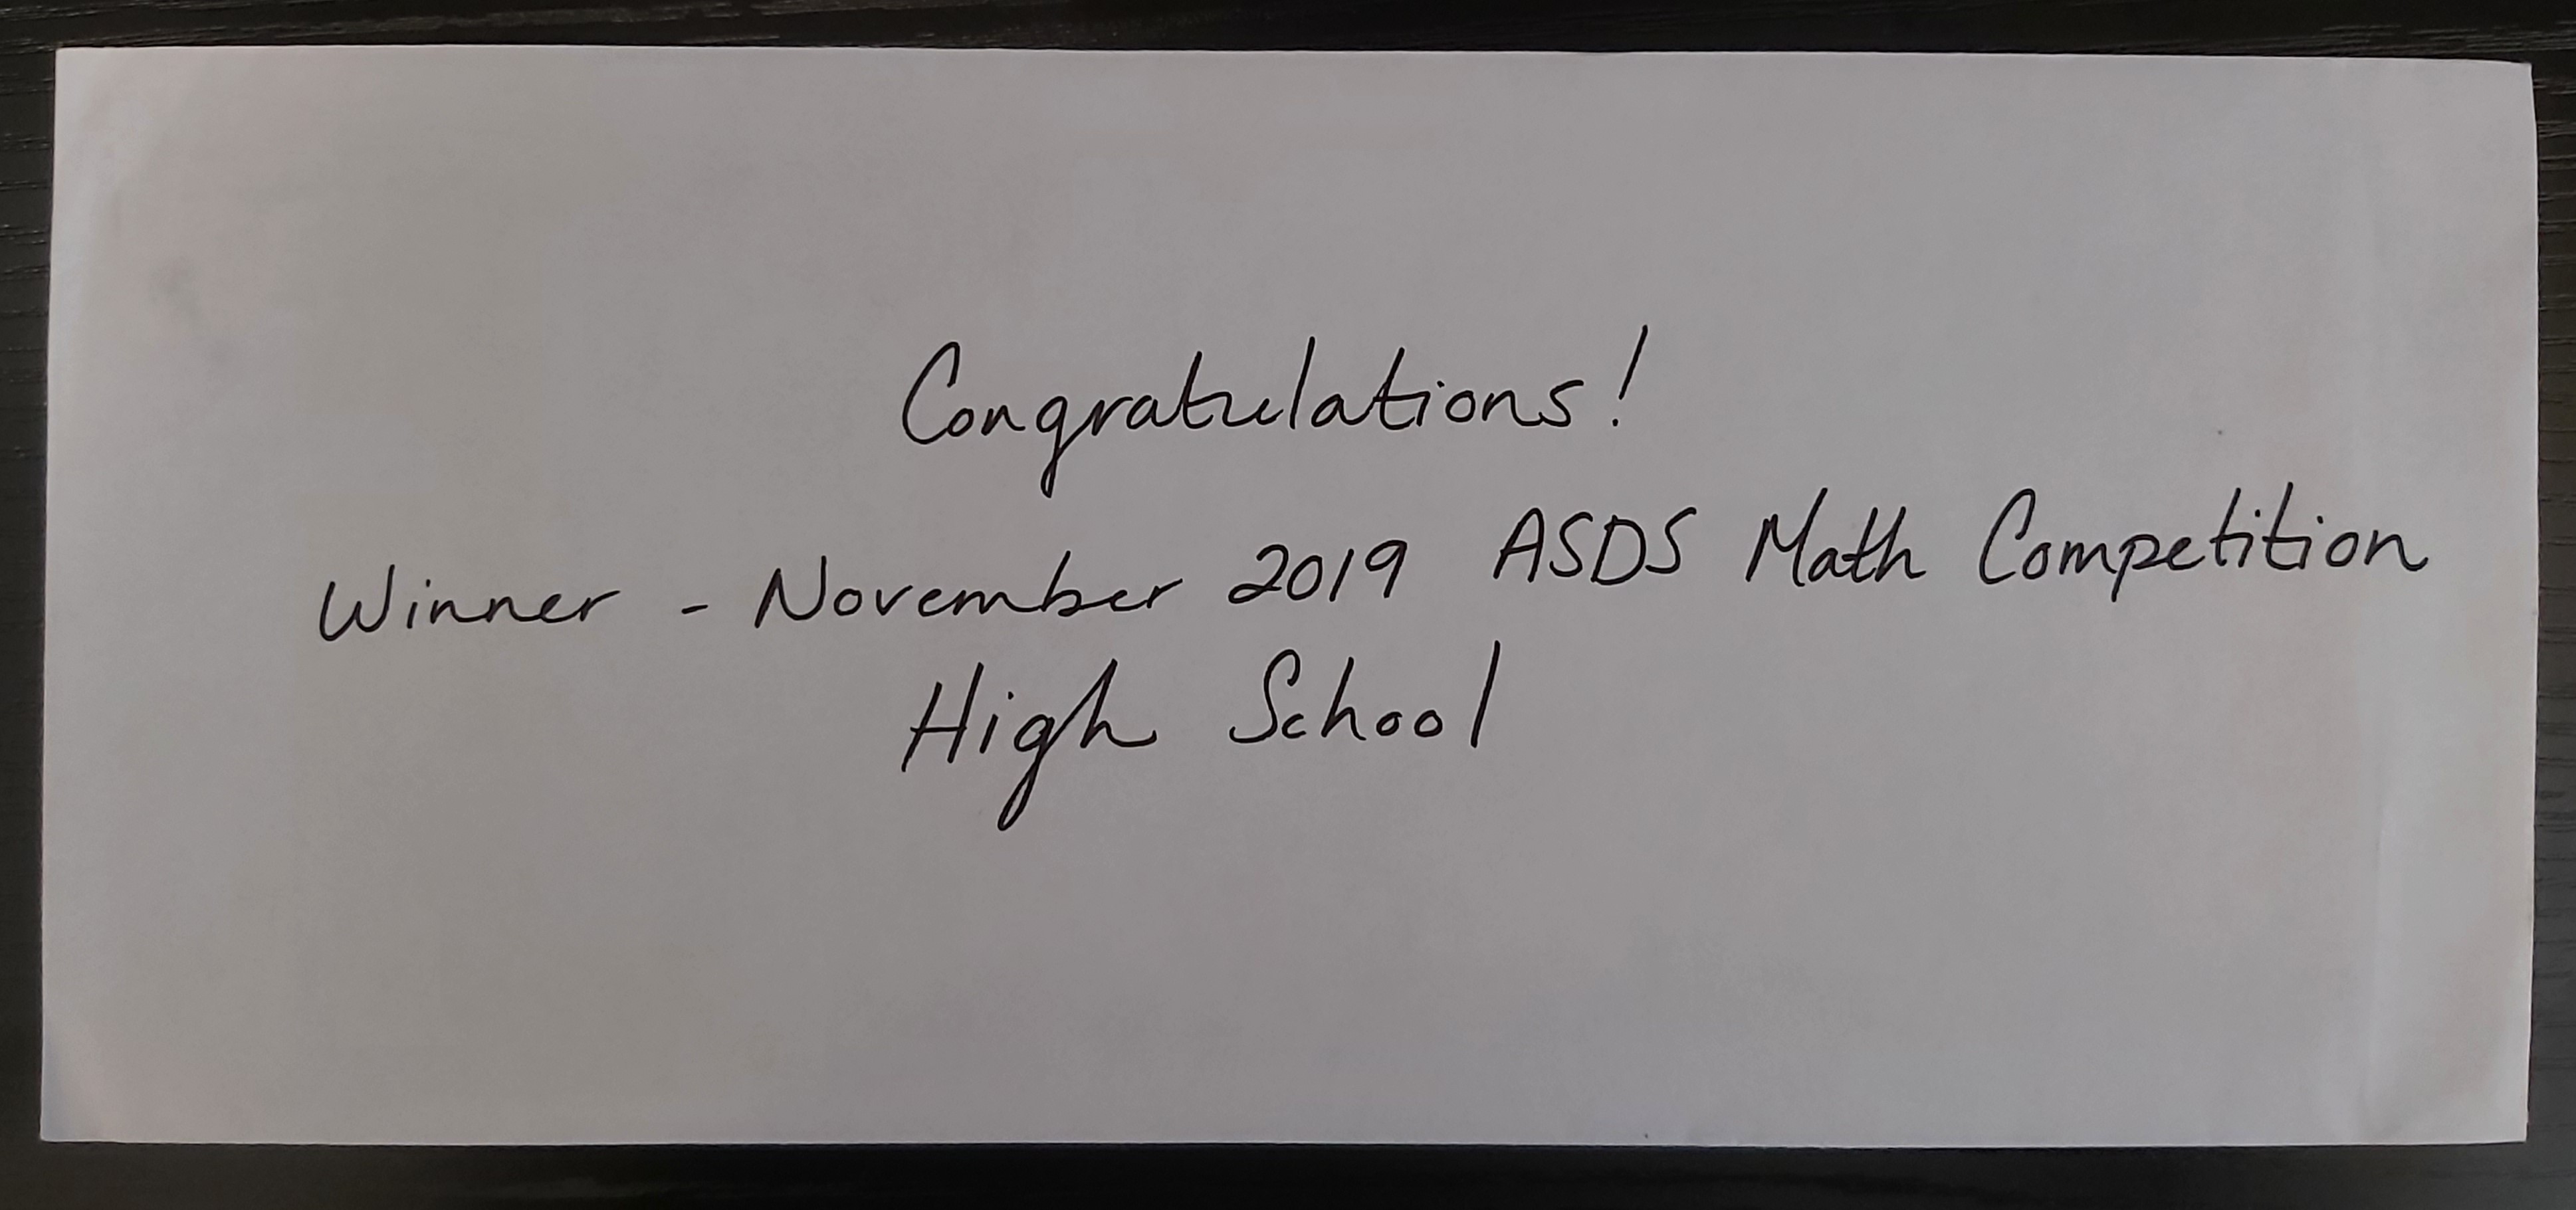 Congratulations!
Winner - November 2019 ASDS Math Competition
High School